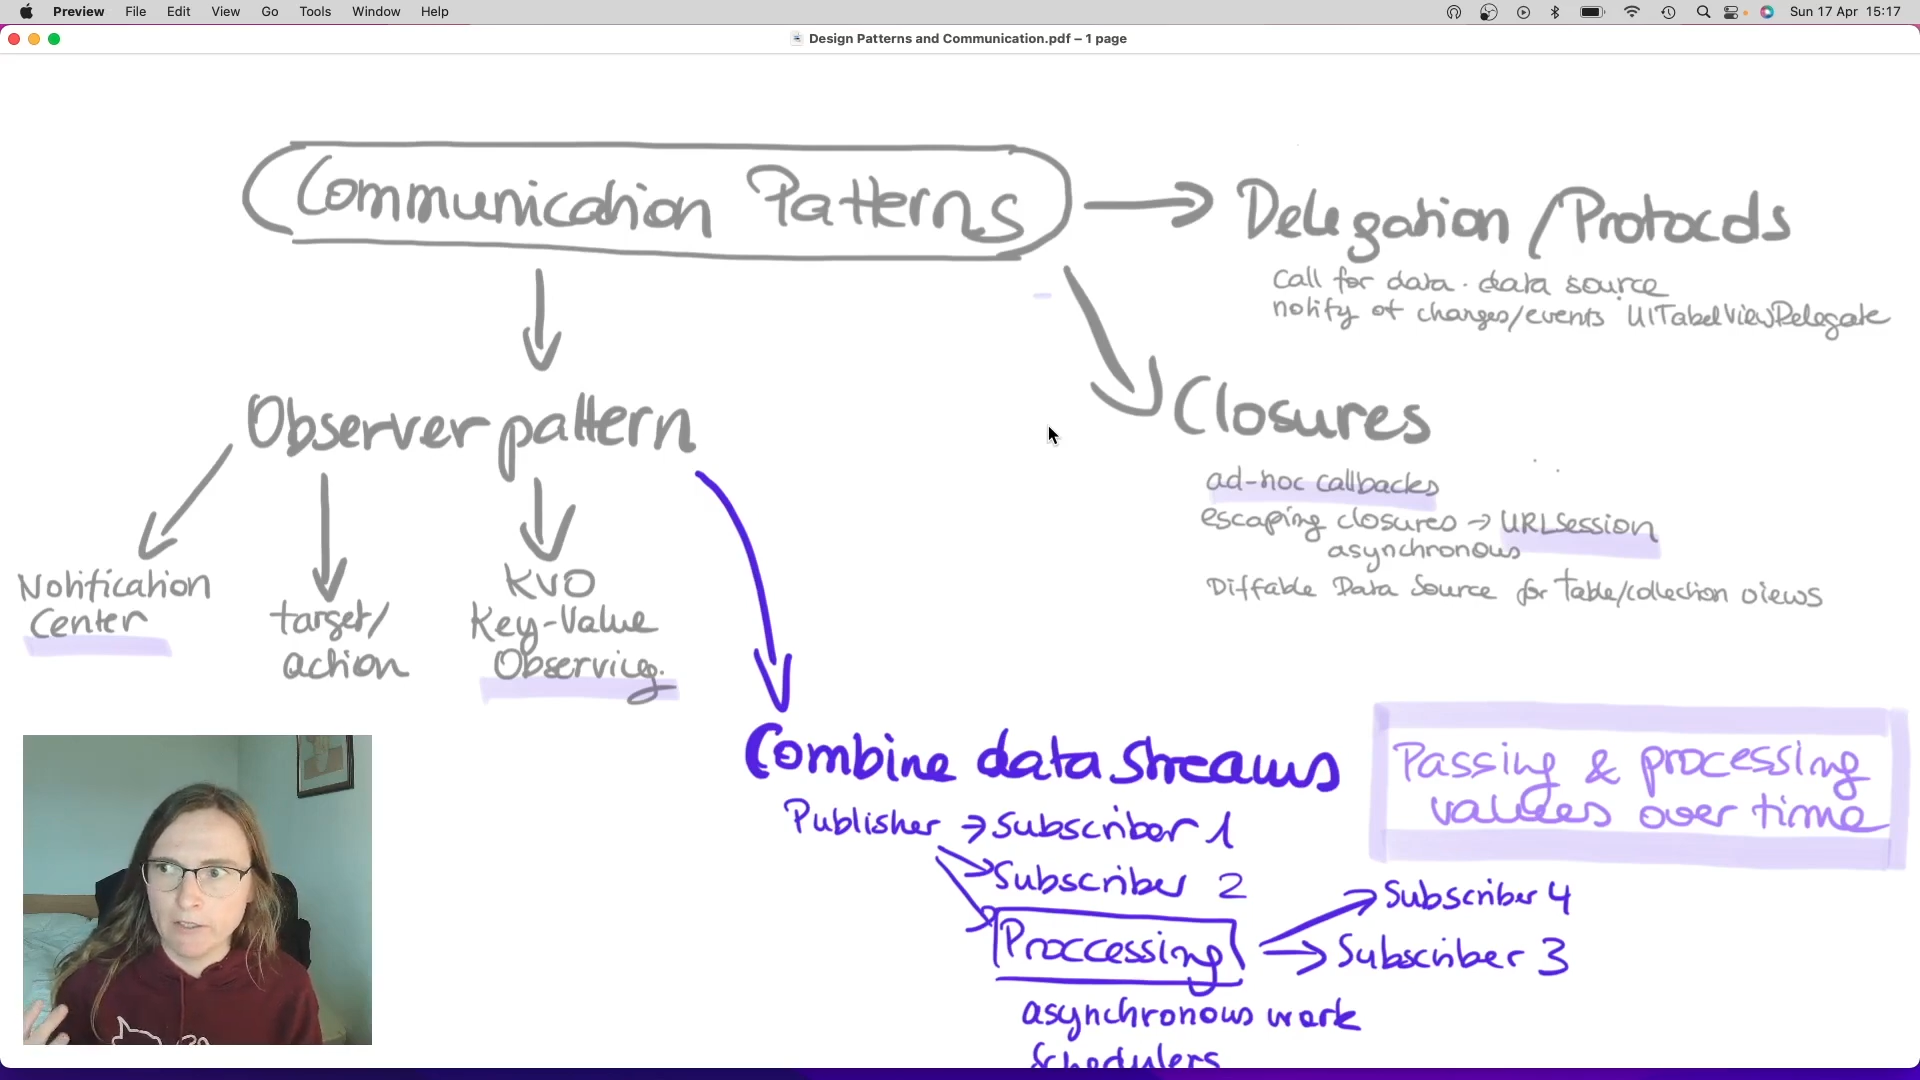 Preview File Edit View Go Tools Window Help
Sun 17 Apr 15:17
Design Patterns and Communication.pdf – 1 page
Communication Patterns
Delegation/Protocols
Call for data. data source
notify of changes/events UITabelViewDelegate
Observer pattern
Closures
ad-hoc callbacks
escaping closures → URLSession
asynchronous
Diffable Data Source for table/collection views
Notification
Center
target/
action
KVO
Key-Value
Observing.
Combine data streams
Publisher → Subscriber 1
Subscriber 2
Proccessing
Subscriber 4
Subscriber 3
asynchronous work
Schedulers
Passing & processing
values over time